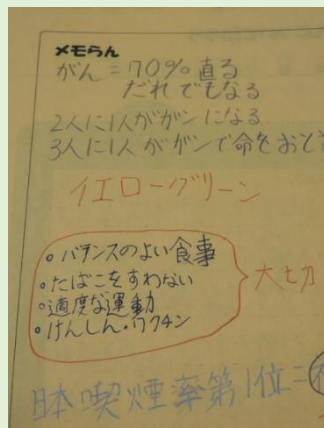 メモらん
がん=70%直る
だれでもなる
2人に1人がガンになる
3人に1人がガンで命をおと
イエローグリーン
◦バランスのよい食事
◦たばこをすわない
◦適度な運動
◦けんしん・ワクチン
大切
日本喫煙薬第1位=